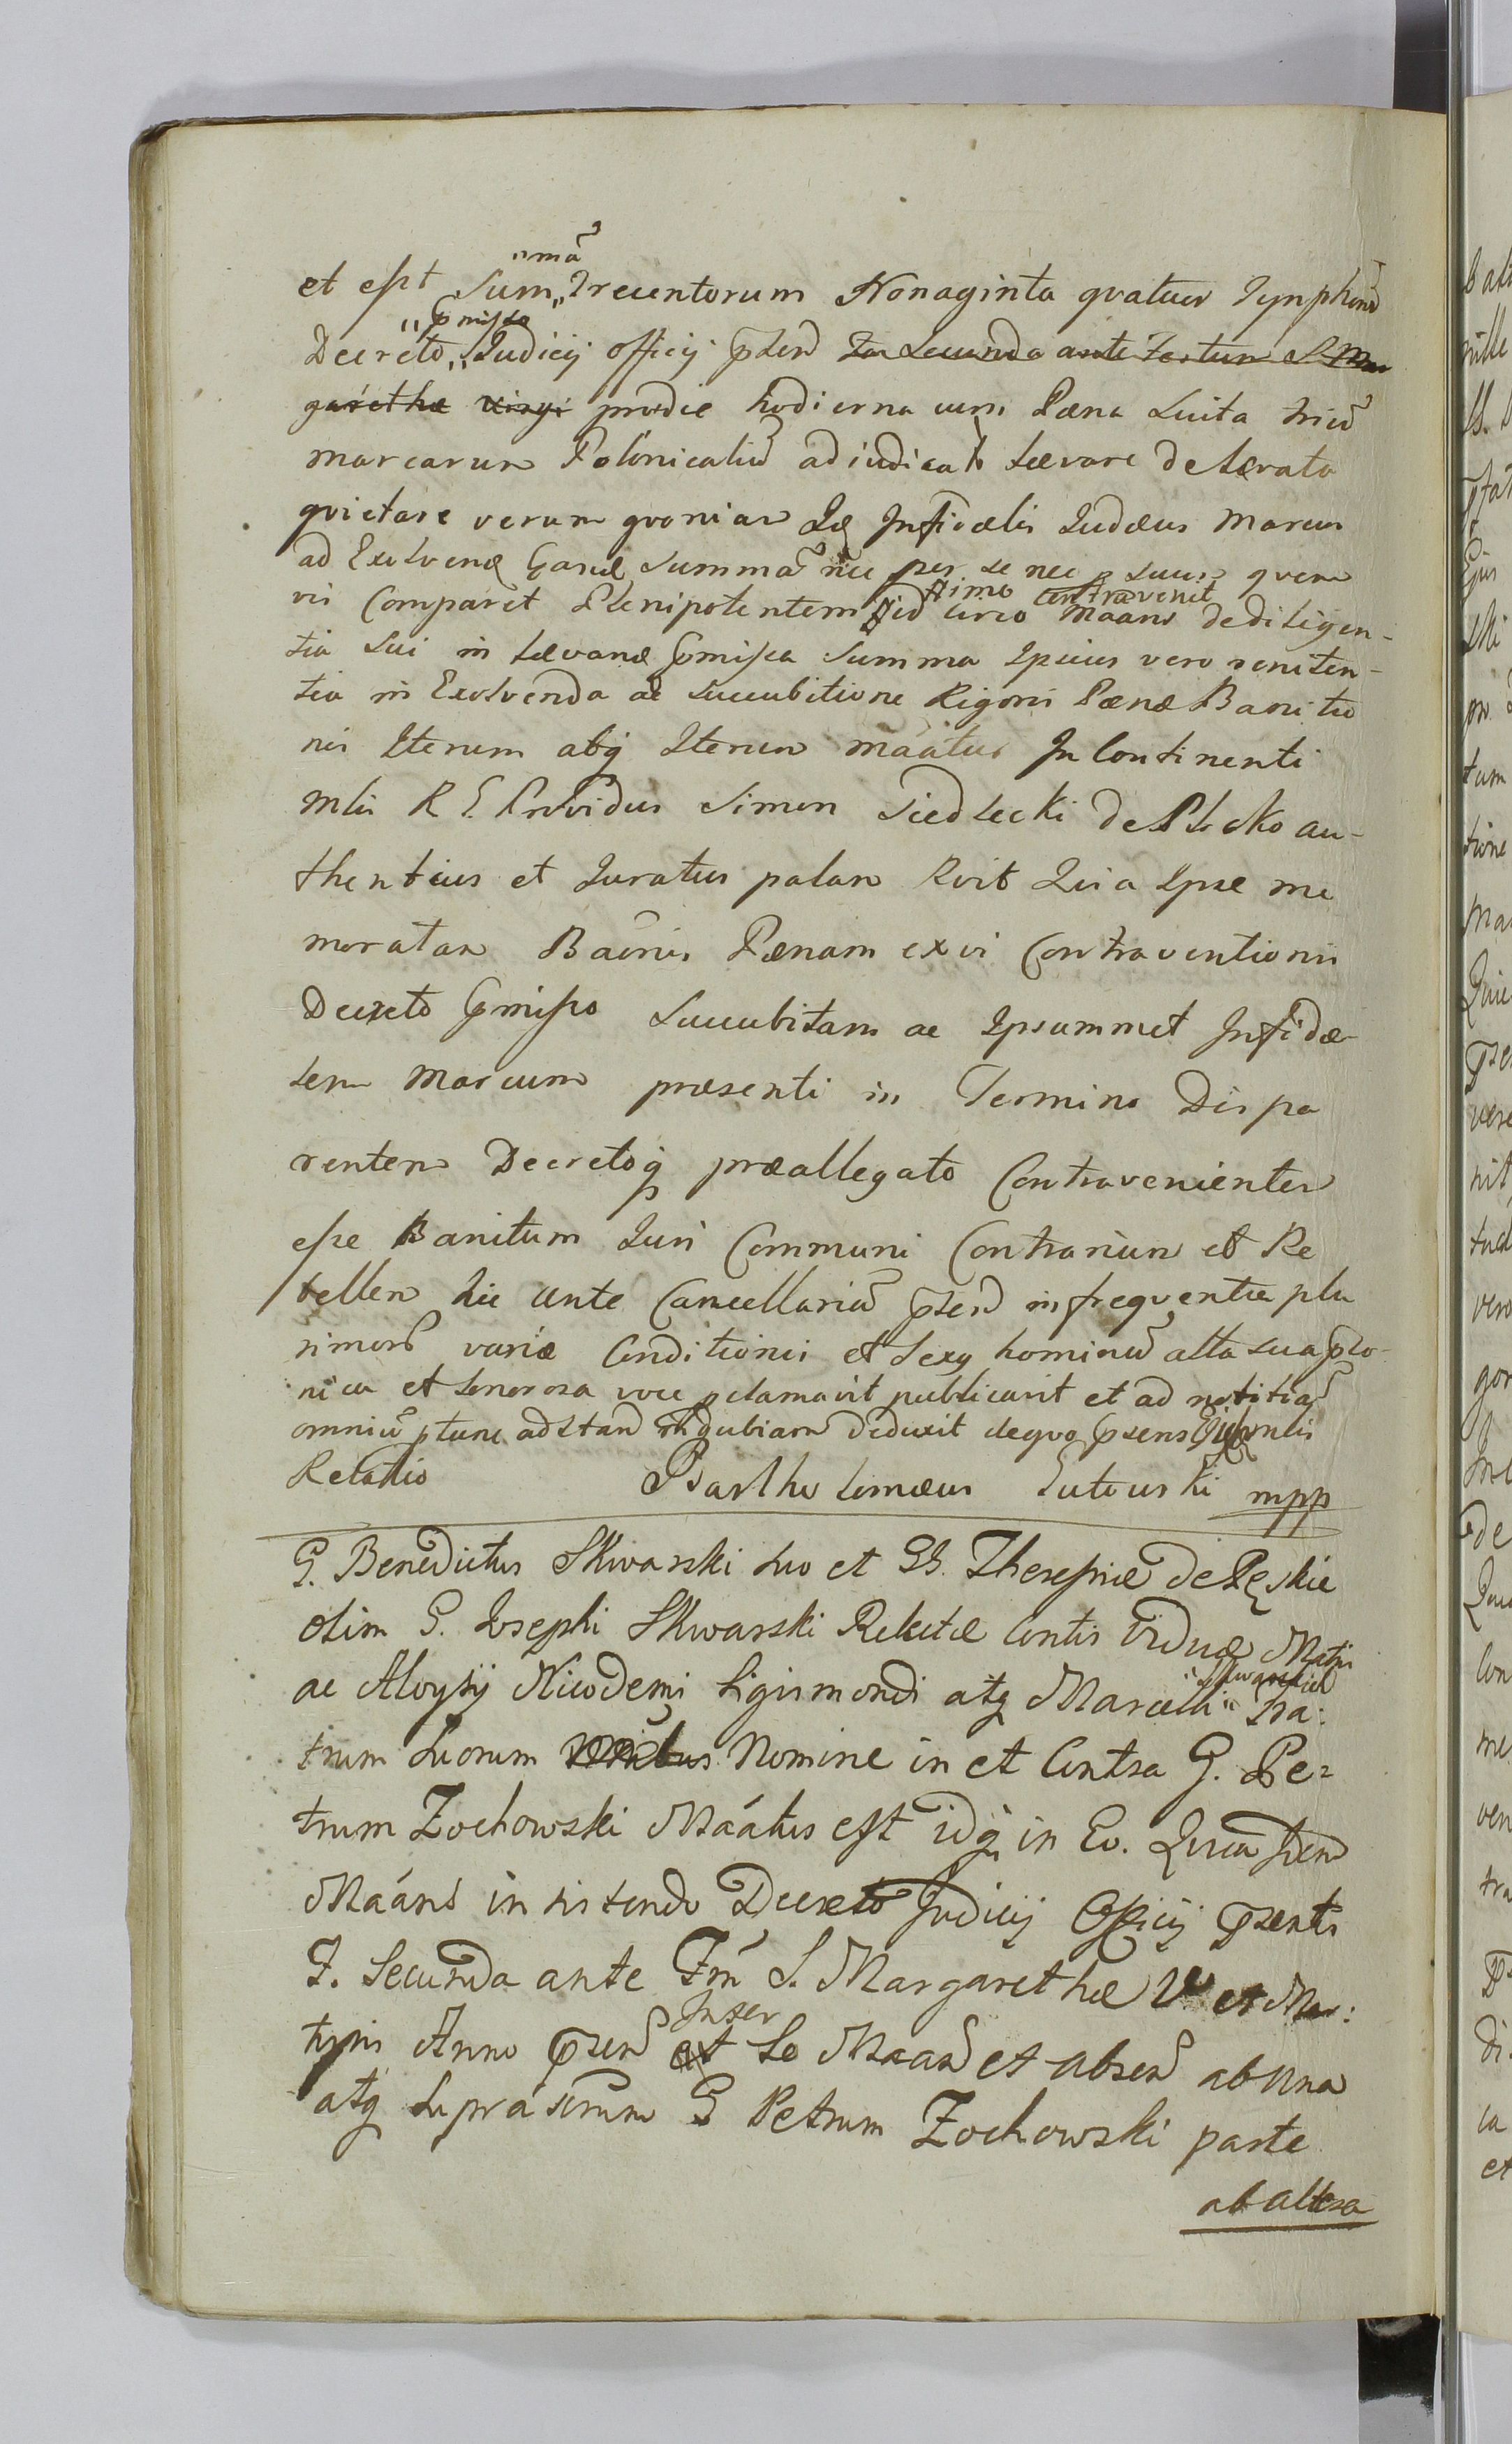 et esst Sum„ "mã Trecentorum Nonaginta qvatuor Tymphonũ
Decreto „ "p̃misso Iudicij officij p̃sen̄ Fer Secunda ante Festum S Mar
garethæ Virgi prodie hodierna cum Pæna Luita triũ
marcarum Polonicaliũ adiudicat̃ Lævare de Lævata
qvietare verum qvoniam Idę Infidælis Iudæus Marcus
ad Exolvenđ Eandę Summã nec per se nec p suum qvem
vis Comparet Plenipotentem imo contravenit Id circo Maãns de diligen-
tia sui in Lævanđ p̃missa Summa Ipsius vero reniten-
tia in Exolvenda ac Succubitione Rigoris Pænæ Banitio
nis Iterum atq̨ Iterum maãtus In Continenti
Mlis R G. Providus Simon Siedlecki de Plocko au-
thenticus et Iuratus palam Rvit Qvia Ipse me
moratam Baõnis Pænam ex vi Contraventionis
Decreto p̃misso Succubitam ac Ipsummet Infidæ
lem Marcum præsenti in Termino Dispa
rentem Decretoq̨ præallegato Contravenientem
esse Banitum Iuri Communi Contrarium et Re
bellem hic ante Cancellariã p̃sen̄ in freqventia plu
rimorũ variæ Conditionis et Sexq̨ hominũ alta sua p̃co-
nica et Sonorosa voce pclamavit publicavit et ad notitiã
omniũ ptunc adstan̄ indubiam deduxit de qvo p̃sens Mlis
Relatio Bartholomæus Lutowski mpp
G. Benedictus Skwarski suo et GG. Theressiæ de
olim G. Iosephi Skwarski Relictæ Contis Viduæ Matris
ac Aloysij Nicodemi Sigismondi atq̨ Marcelli " Skwarskich Fra:
trum Suorum Nomine in et Contra G. Pe=
trum Zochowski Maãtus est idq̨ in Eo. Qvia
Maãns insistendo Decreto Judicij Officij p̃sentis
F. Secunda ante Fm̃ S. Margarethæ V et Mar:
tyris Anno p̃sen̄ Inter Se Maan̄ et absen̄ ab una
atq̨ Suprascrum G Petrum Zochowski parte
ab altera